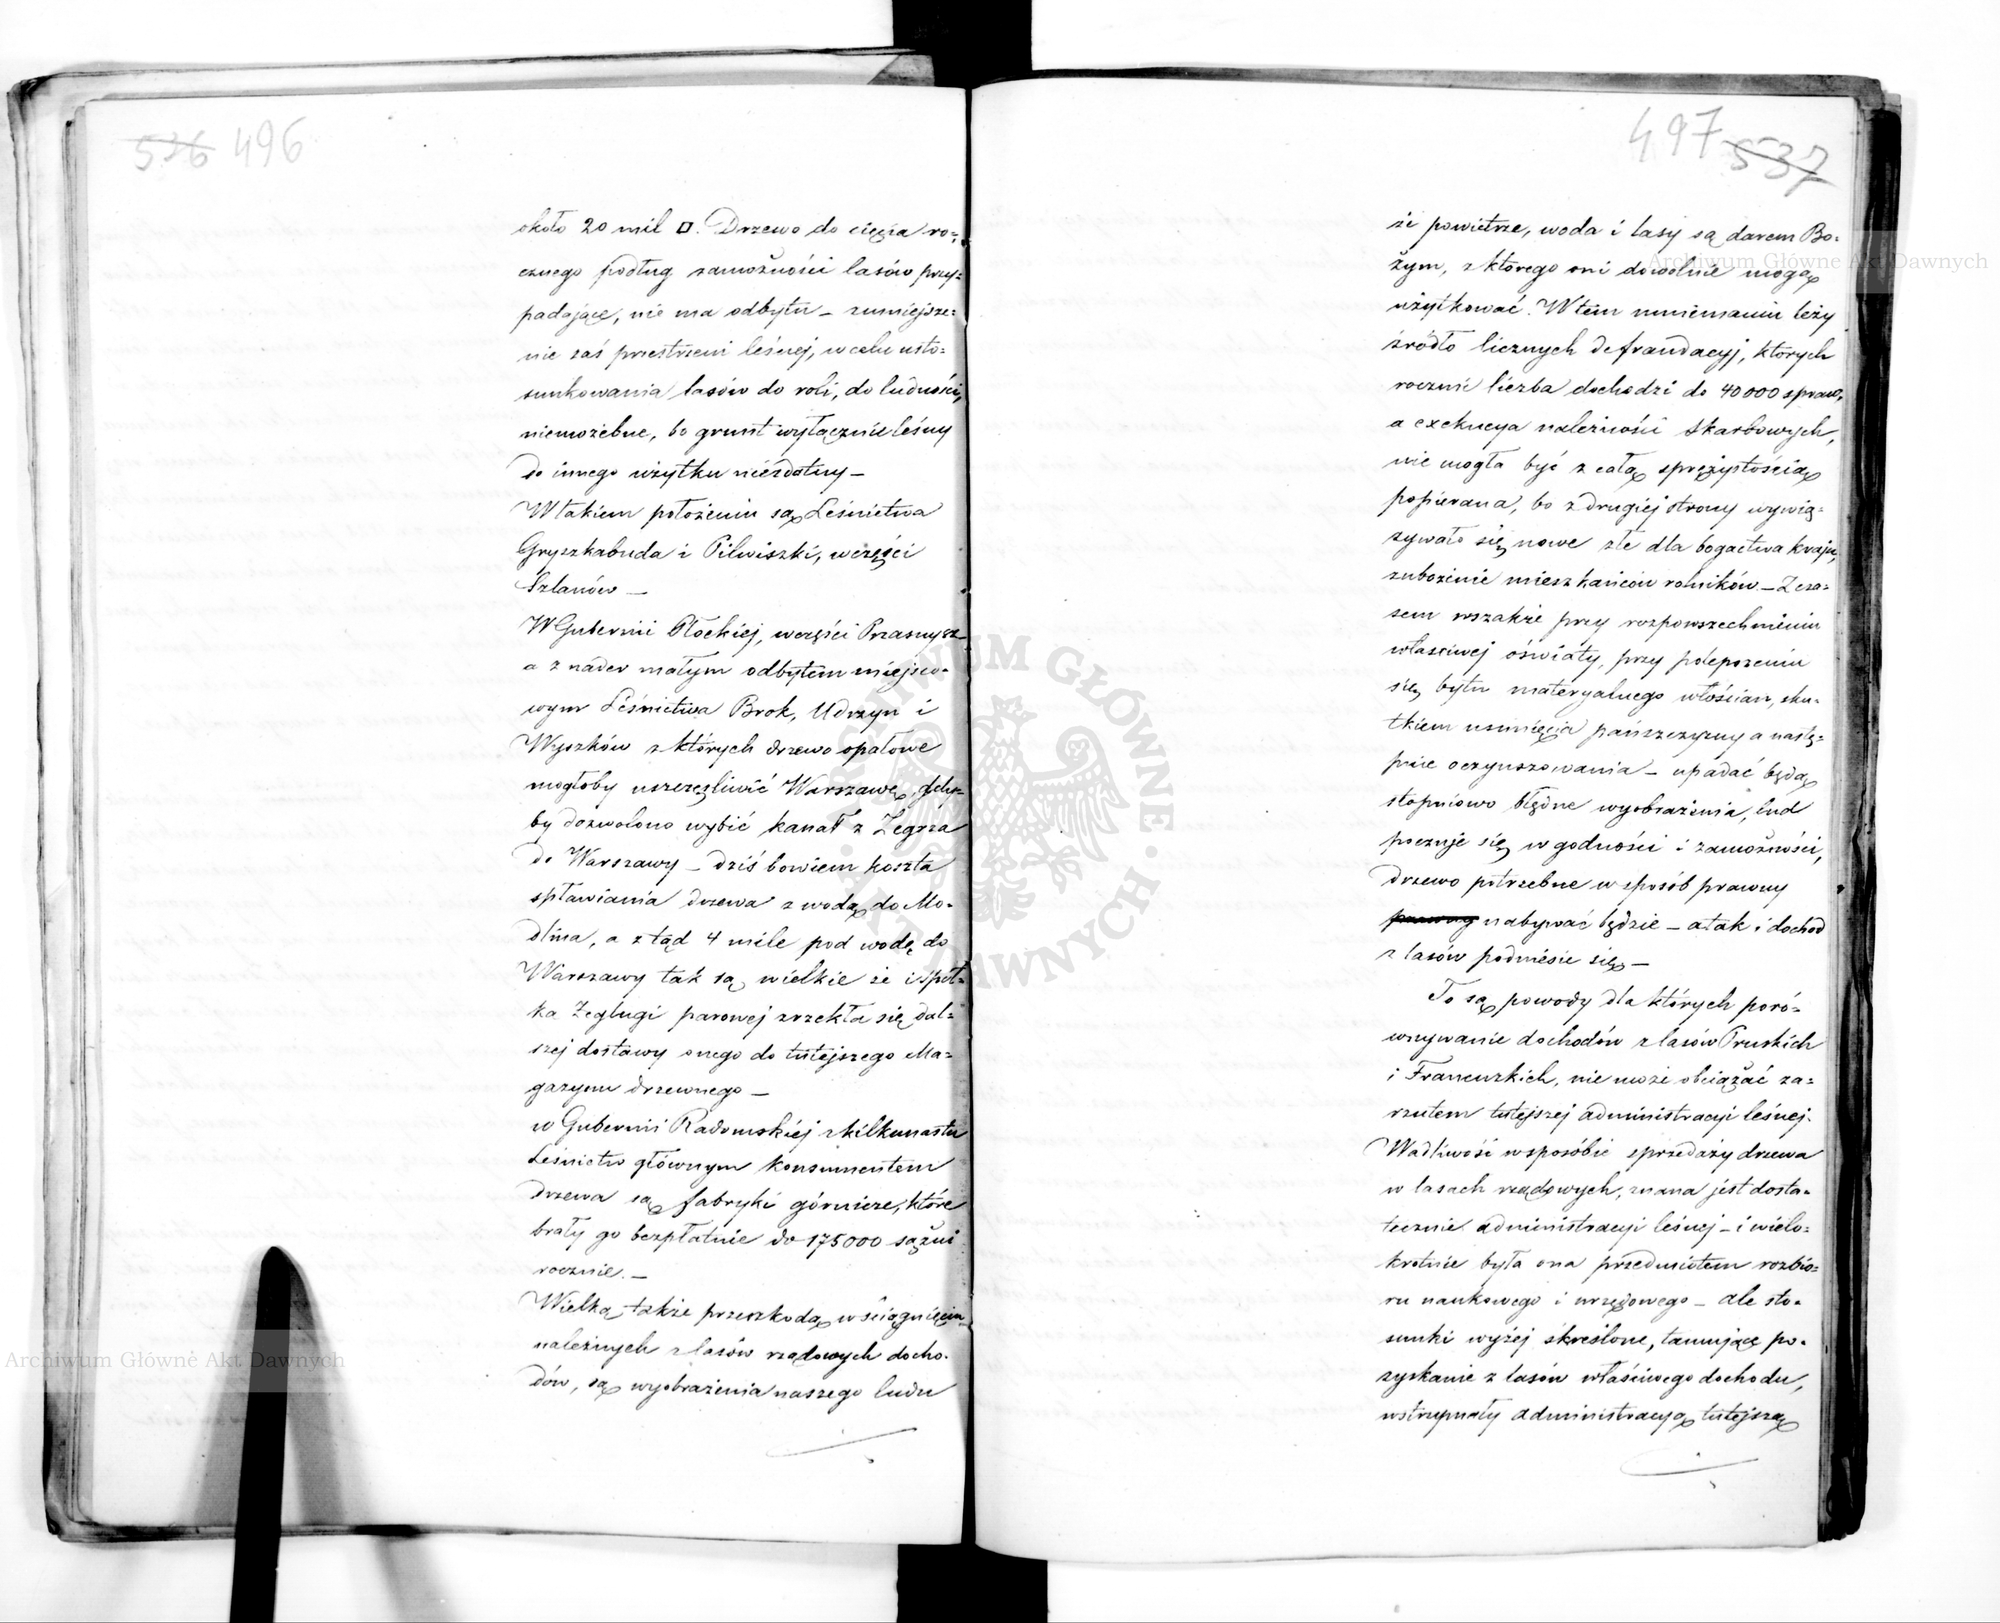 536 496
około 20 mil □. Drzewo do cięcia ro-
cznego podług zamożności lasów przy-
padające, nie ma odbytu – zmniejsze-
nie zaś przestrzeni leśnej, w celu usto-
sunkowania lasów do roli, do ludności,
niemożebne, bo grunt wyłącznie leśny
do innego użytku niezdolny –
W takiem położeniu są Leśnictwa
Gryszkabuda i Pilwiszki, w części
Szlanów –
W Gubernii Płockiej, w części Przasnysz
a z nader małym odbytem miejsco-
wym Leśnictwa Brok, Udrzyn i
Wyszków z których drzewo opałowe
mogłoby uszczęśliwić Warszawę, gdy-
by dozwolono wybić kanał z Zegrza
do Warszawy – dziś bowiem koszta
spławiania drzewa z wodą do Mo-
dlina, a ztąd 4 mile pod wodę do
Warszawy tak są wielkie że i Spół-
ka Żeglugi parowej zrzekła się dal-
szej dostawy onego do tutejszego Ma-
gazynu drzewnego –
w Gubernii Radomskiej z kilkunastu
Leśnictw głównym konsumentem
drzewa są fabryki górnicze, które
brały go bezpłatnie do 175000 sążni
rocznie. –
Wielką także przeszkodą w ściągnięciu
należnych z lasów rządowych docho-
dów, są wyobrażenia naszego ludu
497 537
że powietrze, woda i lasy są darem Bo-
żym, z którego oni dowolnie mogą
użytkować. W tem mniemaniu leży
źródło licznych defraudacyj, których
rocznie liczba dochodzi do 40000 spraw,
a exekucya należności Skarbowych,
nie mogła być z całą sprężystością
popierana, bo z drugiej strony wywią-
zywało się nowe złe dla bogactwa kraju,
zubożenie mieszkańców rolników. – Z cza-
sem wszakże przy rozpowszechnieniu
właściwej oświaty, przy polepszeniu
się bytu materyalnego włościan, sku-
tkiem usunięcia pańszczyzny a nastę-
pnie oczynszowania – upadać będą
stopniowo błędne wyobrażenia, lud
poczuje się w godności i zamożności,
drzewo potrzebne w sposób prawny
prawny nabywać będzie – a tak i dochod
z lasów podniesie się –
To są powody dla których poró-
wnywanie dochodów z lasów Pruskich
i Francuzkich, nie może obciążać za-
rzutem tutejszej administracyi leśnej.
Wadliwość w sposobie sprzedaży drzewa
w lasach rządowych, znana jest dosta-
tecznie administracyi leśnej – i wielo-
krotnie była ona przedmiotem rozbio-
ru naukowego i urzędowego – ale sto-
sunki wyżej skreślone, tamujące po-
zyskanie z lasów właściwego dochodu,
wstrzymały administracyą tutejszą
Archiwum Główne Akt Dawnych
Archiwum Główne Akt Dawnych
ARCHIWUM GŁÓWNE AKT DAWNYCH